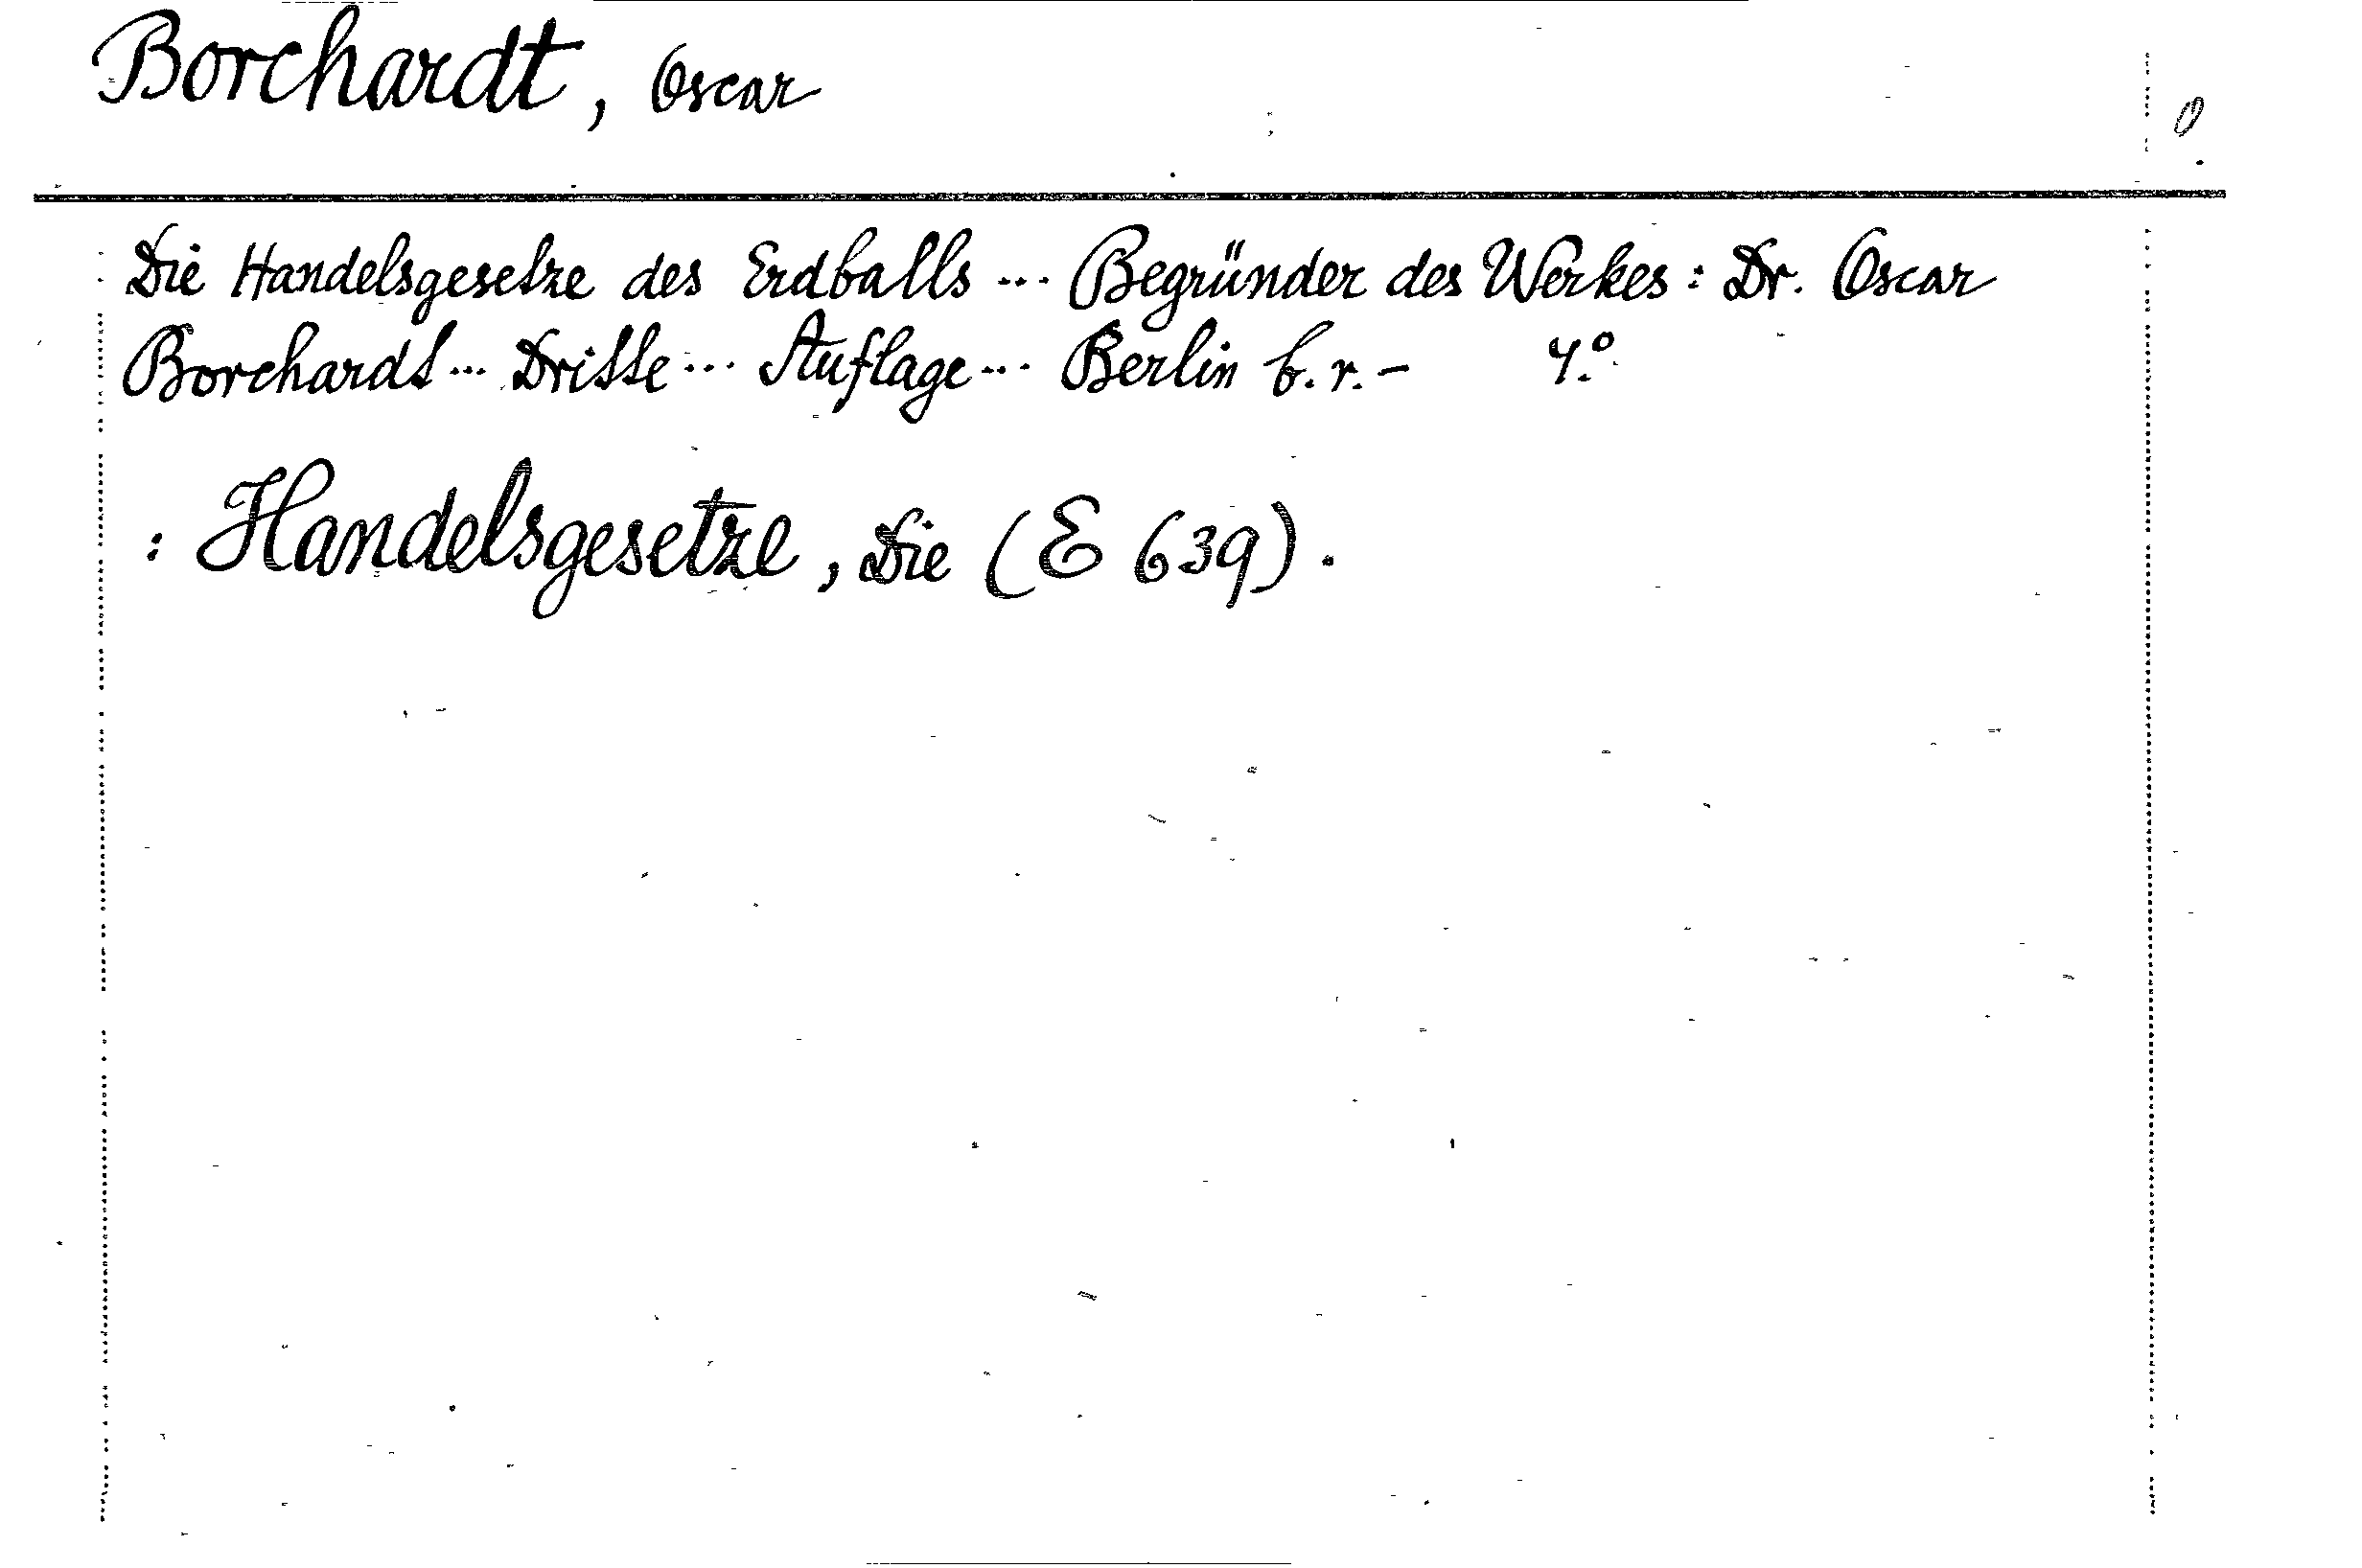 Borchardt, Oscar
0
Die Handelsgesetze des Erdballs ... Begründer des Werkes: Dr. Oscar
Borchardt ... Dritte ... Auflage ... Berlin b. r. - 4.º
: Handelsgesetze, Die (E 639).